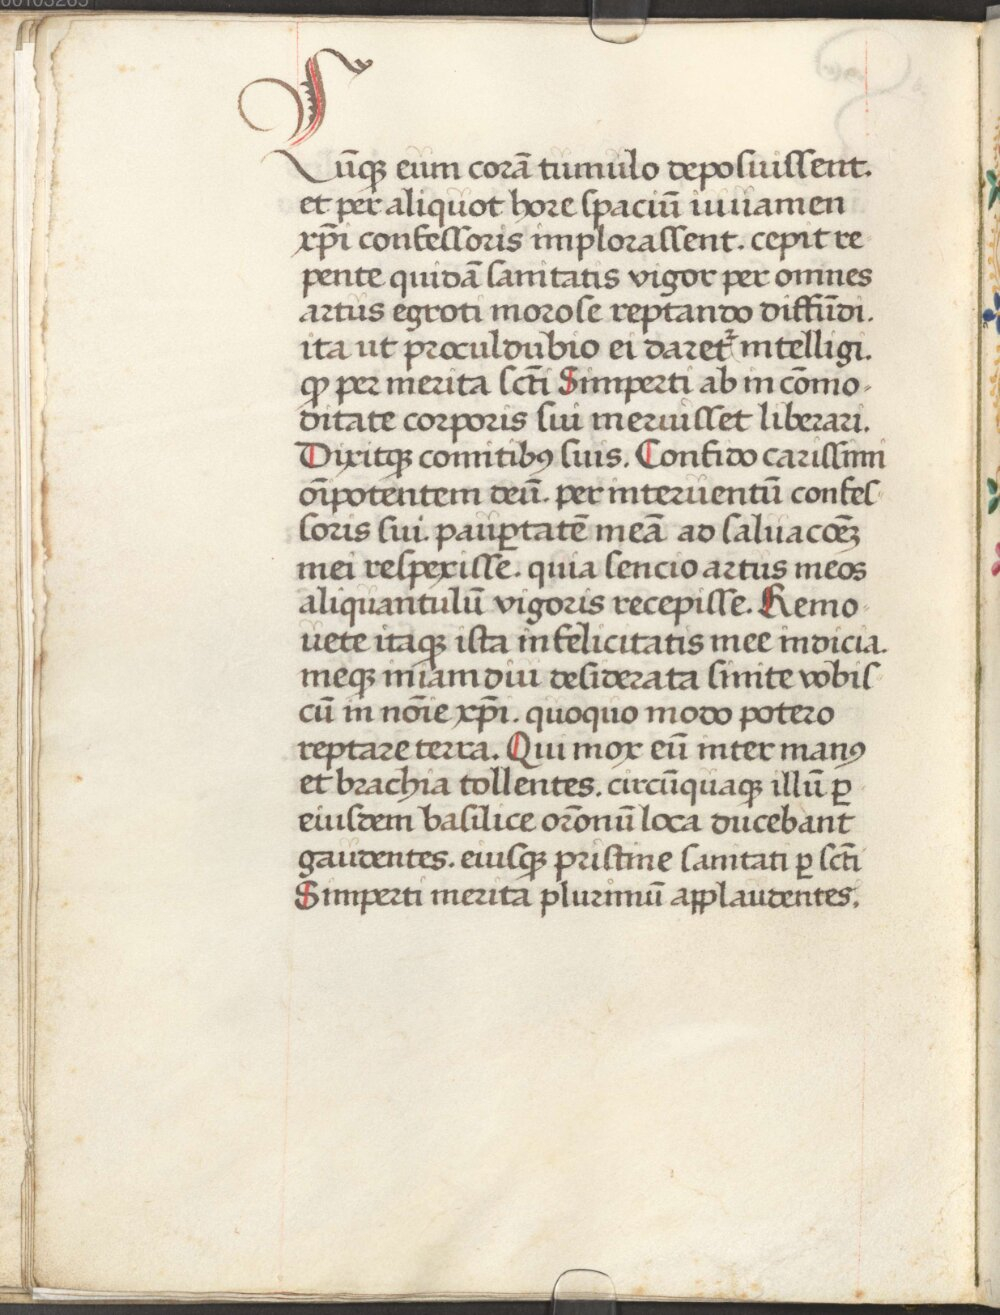 Cūq̄ꝫ eum corā tumulo deposuissent.
et per aliquot hore spaciū iuuamen
xp̄i confessoris implorassent. cepit re
pente quidā sanitatis vigor per omnes
artus egroti morose reptando diffūdi.
ita ut proculdubio ei daret᷑ intelligi.
ꝙ per merita sc̄ti Simperti ab in cōmo-
ditate corporis sui meruisset liberari.
Dixitqꝫ comitibꝰ suis. Confido carissimi
oīpotentem deū. per interuentū confes-
soris sui. paup̱tatē meā ad saluacōeꝫ
mei respexisse. quia sencio artus meos
aliquantulū vigoris recepisse. Remo-
uete itaqꝫ ista infelicitatis mee indicia.
meqꝫ in iam diu desiderata sinite vobis-
cū in nōie xp̄i. quoquo modo potero
reptare terra. Qui mox eū inter manꝰ
et brachia tollentes. circūquaqꝫ illū ꝑ
eiusdem basilice or̄onū loca ducebant
gaudentes. eiusqꝫ pristine sanitati ꝑ sc̄ti
Simperti merita plurimū applaudentes.